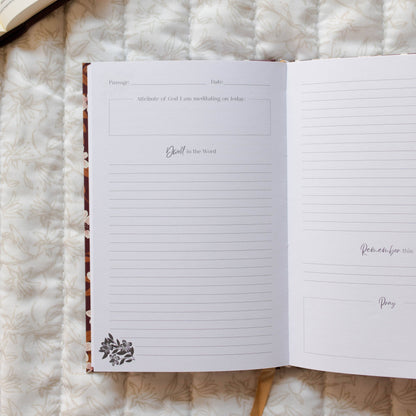 Passage: Date:
Attribute of God I am meditating on today:
Dwell in the Word
Remember this
Pray